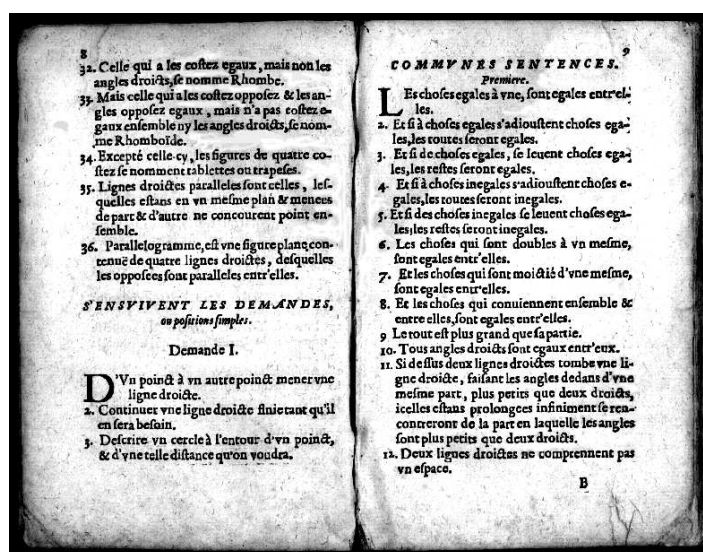 8
32. Celle qui a les costez egaux, mais non les
angles droicts, se nomme Rhombe.
33. Mais celle qui a les costez opposez & les an-
gles opposez egaux, mais n'a pas costez e-
gaux ensemble ny les angles droicts, se nom-
me Rhomboïde.
34. Excepté celle-cy, les figures de quatre co-
stez se nomment tablettes ou trapeses.
35. Lignes droictes paralleles sont celles, les-
quelles estans en vn mesme plan & menees
de part & d'autre ne concourent point en-
semble.
36. Parallelogramme, est vne figure plane, con-
tenuë de quatre lignes droictes, desquelles
les opposees sont paralleles entr'elles.
S'ENSVIVENT LES DEMANDES,
ou positions simples.
Demande I.
D'Vn poinct à vn autre poinct mener vne
ligne droicte.
2. Continuer vne ligne droicte finie tant qu'il
en sera besoin.
3. Descrire vn cercle à l'entour d'vn poinct,
& d'vne telle distance qu'on voudra.
9
COMMVNES SENTENCES.
Premiere.
LEs choses egales à vne, sont egales entr'el-
les.
2. Et si à choses egales s'adioustent choses ega-
les, les toutes seront egales.
3. Et si de choses egales, se leuent choses ega-
les, les restes seront egales.
4. Et si à choses inegales s'adioustent choses e-
gales, les toutes seront inegales.
5. Et si des choses inegales se leuent choses ega-
les, les restes seront inegales.
6. Les choses qui sont doubles à vn mesme,
sont egales entr'elles.
7. Et les choses qui sont moictié d'vne mesme,
sont egales entr'elles.
8. Et les choses qui conuiennent ensemble &
entre elles, sont egales entr'elles.
9 Le tout est plus grand que sa partie.
10. Tous angles droicts sont egaux entr'eux.
11. Si dessus deux lignes droictes tombe vne li-
gne droicte, faisant les angles dedans d'vne
mesme part, plus petits que deux droicts,
icelles estans prolongees infiniment se ren-
contreront de la part en laquelle les angles
sont plus petits que deux droicts.
12. Deux lignes droictes ne comprennent pas
vn espace.
B